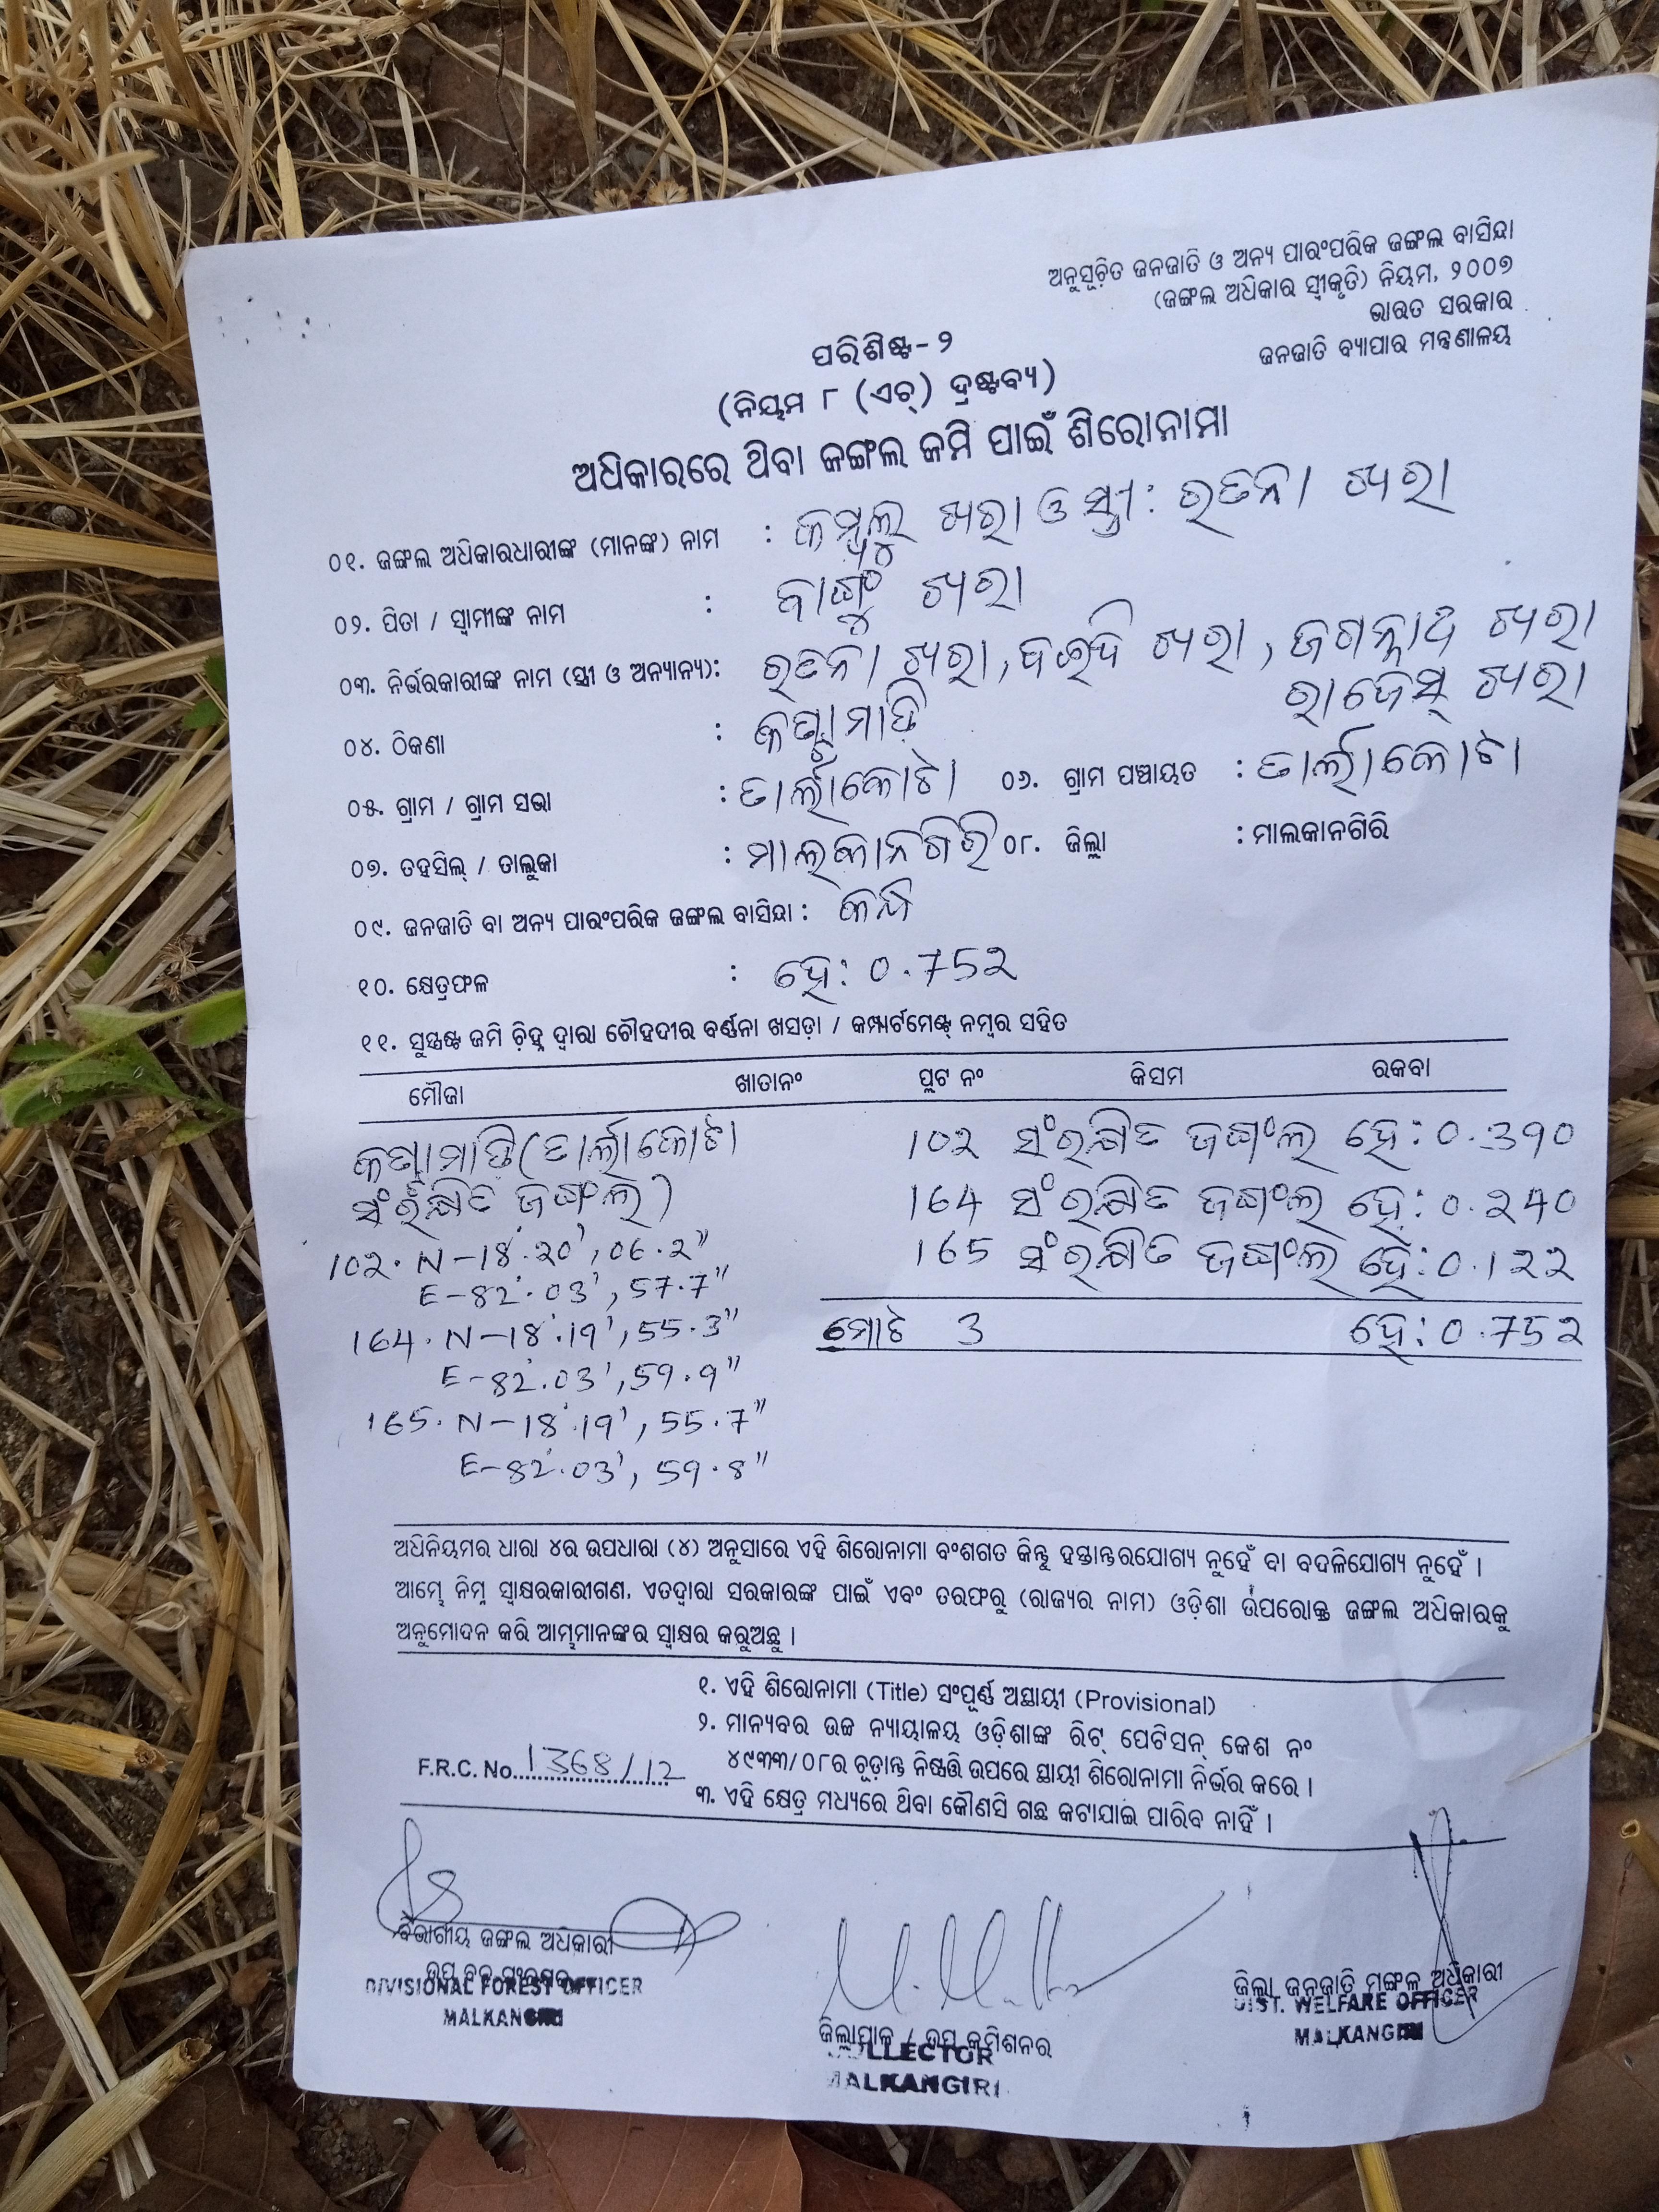 ଅନୁସୂଚିତ ଜନଜାତି ଓ ଅନ୍ୟ ପାରଂପରିକ ଜଙ୍ଗଲ ବାସିନ୍ଦା
(ଜଙ୍ଗଲ ଅଧିକାର ସ୍ୱୀକୃତି) ନିୟମ, ୨୦୦୭
ଭାରତ ସରକାର
ଜନଜାତି ବ୍ୟାପାର ମନ୍ତ୍ରଣାଳୟ
ପରିଶିଷ୍ଟ-୨
(ନିୟମ ୮ (ଏଚ୍) ଦ୍ରଷ୍ଟବ୍ୟ)
ଅଧିକାରରେ ଥିବା ଜଙ୍ଗଲ ଜମି ପାଇଁ ଶିରୋନାମା
୦୧. ଜଙ୍ଗଲ ଅଧିକାରଧାରୀଙ୍କ (ମାନଙ୍କ) ନାମ : ଖରା ଓ ସ୍ତ୍ରୀ: ରତନା ଖରା
୦୨. ପିତା / ସ୍ୱାମୀଙ୍କ ନାମ : ଖରା
୦୩. ନିର୍ଭରକାରୀଙ୍କ ନାମ (ସ୍ତ୍ରୀ ଓ ଅନ୍ୟାନ୍ୟ): ରତନା ଖରା, ଖରା, ଜଗନ୍ନାଥ ଖରା
ରାଜେସ୍ ଖରା
୦୪. ଠିକଣା :
୦୫. ଗ୍ରାମ / ଗ୍ରାମ ସଭା : ତାର୍ଲାକୋଟା ୦୬. ଗ୍ରାମ ପଞ୍ଚାୟତ : ତାର୍ଲାକୋଟା
୦୭. ତହସିଲ୍ / ତାଲୁକା : ମାଲକାନଗିରି ୦୮. ଜିଲ୍ଲା : ମାଲକାନଗିରି
୦୯. ଜନଜାତି ବା ଅନ୍ୟ ପାରଂପରିକ ଜଙ୍ଗଲ ବାସିନ୍ଦା :
୧୦. କ୍ଷେତ୍ରଫଳ : ହେ: 0.752
୧୧. ସୁସ୍ପଷ୍ଟ ଜମି ଚିହ୍ନ ଦ୍ୱାରା ଚୌହଦୀର ବର୍ଣ୍ଣନା ଖସଡ଼ା / କମ୍ପାର୍ଟମେଣ୍ଟ୍ ନମ୍ବର ସହିତ
ମୌଜା ଖାତାନଂ ପ୍ଲଟ ନଂ କିସମ ରକବା
(ତାର୍ଲାକୋଟା 102 ସଂରକ୍ଷିତ ଜଙ୍ଗଲ ହେ: 0.390
ସଂରକ୍ଷିତ ଜଙ୍ଗଲ) 164 ସଂରକ୍ଷିତ ଜଙ୍ଗଲ ହେ: 0.240
102. N-18°.20', 06.2" 165 ସଂରକ୍ଷିତ ଜଙ୍ଗଲ ହେ: 0.122
E-82°.03', 57.7"
164. N-18°.19', 55.3" ମୋଟ 3 ହେ: 0.752
E-82°.03', 59.9"
165. N-18°.19', 55.7"
E-82°.03', 59.8"
ଅଧିନିୟମର ଧାରା ୪ର ଉପଧାରା (୪) ଅନୁସାରେ ଏହି ଶିରୋନାମା ବଂଶଗତ କିନ୍ତୁ ହସ୍ତାନ୍ତରଯୋଗ୍ୟ ନୁହେଁ ବା ବଦଳିଯୋଗ୍ୟ ନୁହେଁ ।
ଆମ୍ଭେ ନିମ୍ନ ସ୍ୱାକ୍ଷରକାରୀଗଣ, ଏତଦ୍ୱାରା ସରକାରଙ୍କ ପାଇଁ ଏବଂ ତରଫରୁ (ରାଜ୍ୟର ନାମ) ଓଡ଼ିଶା ଉପରୋକ୍ତ ଜଙ୍ଗଲ ଅଧିକାରକୁ
ଅନୁମୋଦନ କରି ଆମ୍ଭମାନଙ୍କର ସ୍ୱାକ୍ଷର କରୁଅଛୁ ।
୧. ଏହି ଶିରୋନାମା (Title) ସଂପୂର୍ଣ୍ଣ ଅସ୍ଥାୟୀ (Provisional)
୨. ମାନ୍ୟବର ଉଚ୍ଚ ନ୍ୟାୟାଳୟ ଓଡ଼ିଶାଙ୍କ ରିଟ୍ ପେଟିସନ୍ କେଶ ନଂ
୪୯୩୩/୦୮ର ଚୂଡ଼ାନ୍ତ ନିଷ୍ପତ୍ତି ଉପରେ ସ୍ଥାୟୀ ଶିରୋନାମା ନିର୍ଭର କରେ ।
F.R.C. No. 1368/12
୩. ଏହି କ୍ଷେତ୍ର ମଧ୍ୟରେ ଥିବା କୌଣସି ଗଛ କଟାଯାଇ ପାରିବ ନାହିଁ ।
ବିଭାଗୀୟ ଜଙ୍ଗଲ ଅଧିକାରୀ
DIVISIONAL FOREST OFFICER
MALKANGIRI
ଜିଲ୍ଲାପାଳ / ଉପ କମିଶନର
COLLECTOR
MALKANGIRI
ଜିଲ୍ଲା ଜନଜାତି ମଙ୍ଗଳ ଅଧିକାରୀ
DIST. WELFARE OFFICER
MALKANGIRI